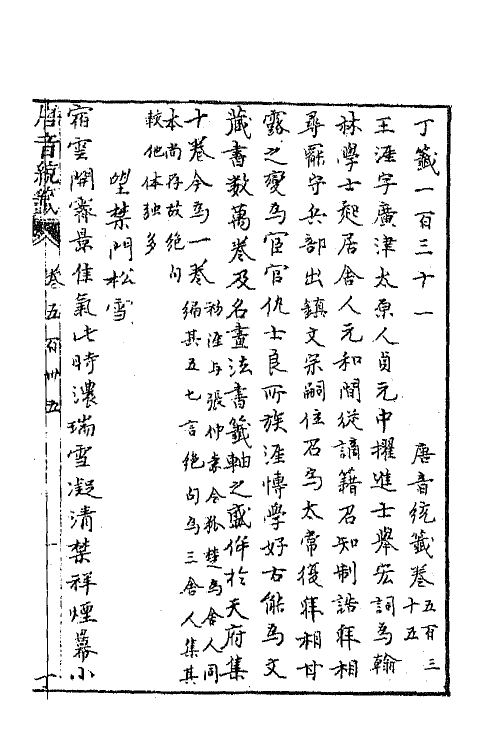 丁籤一百三十一
唐音統籤卷五百三十五
王涯字廣津太原人貞元中擢進士舉宏詞為翰
林學士起居舍人元和間從謫籍召知制誥拜相
尋罷守兵部出鎮文宗嗣位召為太常復拜相甘
露之變為宦官仇士良所族涯博學好古能為文
藏書数萬卷及名畫法書籤軸之盛侔於天府集
十卷今為一卷
初涯与張仲素令狐楚為舍人同
編其五七言絶句為三舍人集其
本尚存故絶句
較他体独多
望禁門松雪
宿雲開霽景佳氣此時濃瑞雪凝清禁祥煙冪小
唐音統籤
卷五百卅五
一